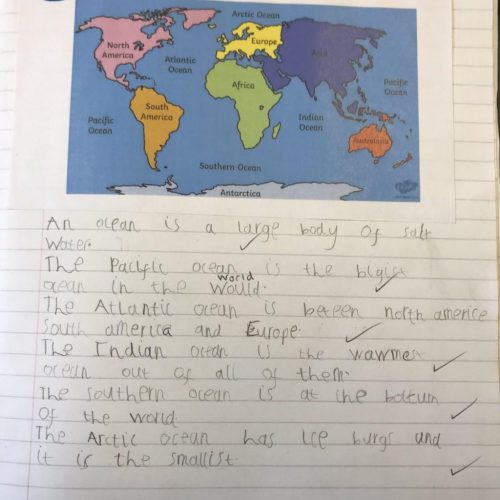 Arctic Ocean
North
America
Europe
Asia
Atlantic
Ocean
Africa
Pacific
Ocean
South
America
Pacific
Ocean
Indian
Ocean
Australasia
Southern Ocean
Antarctica
An ocean is a large body of salt
water.
The Pacific ocean is the bigist
world
ocean in the would.
The Atlantic ocean is beteen north americe
south america and Europe.
The Indian ocean is the wawmest
ocean out of all of them.
The southern ocean is at the bottum
of the world
The Arctic ocean has ice burgs and
it is the smallist.